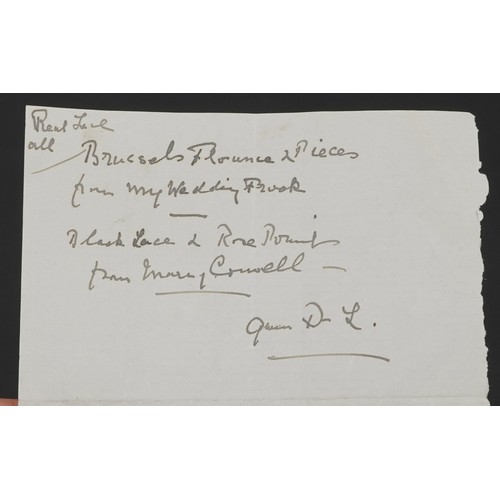 Real Lace
all
Brussels Flounce & Pieces
from my Wedding Frock
Black Lace & Rose Point
from Mary
D L.